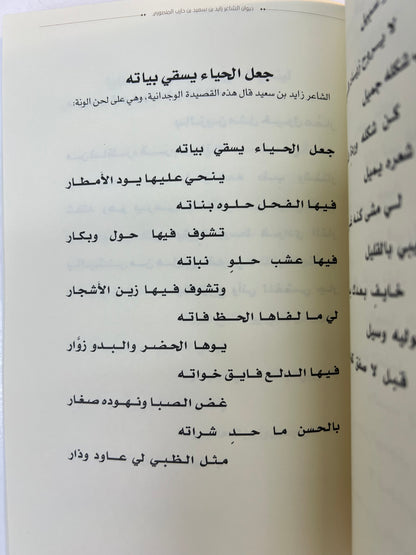 ديوان الشاعر زايد بن سعيد بن حارب المنصوري
جعل الحياء يسقي بياته
الشاعر زايد بن سعيد قال هذه القصيدة الوجدانية، وهي على لحن الونة:
جعل الحياء يسقي بياته
ينحي عليها يود الأمطار
فيها الفحل حلوه بناته
تشوف فيها حول وبكار
فيها عشب حلوِ نباته
وتشوف فيها زين الأشجار
لي ما لفاها الحظ فاته
يوها الحضر والبدو زوَّار
فيها الدلع فايق خواته
غض الصبا ونهوده صغار
بالحسن ما حدِ شراته
مثل الظبي لي عاود وذار
كن شكله
شعره يميل
لي مشى كنه
بي بالقليل
خايف بعدك
وليه وسيل
قبل لا سفر